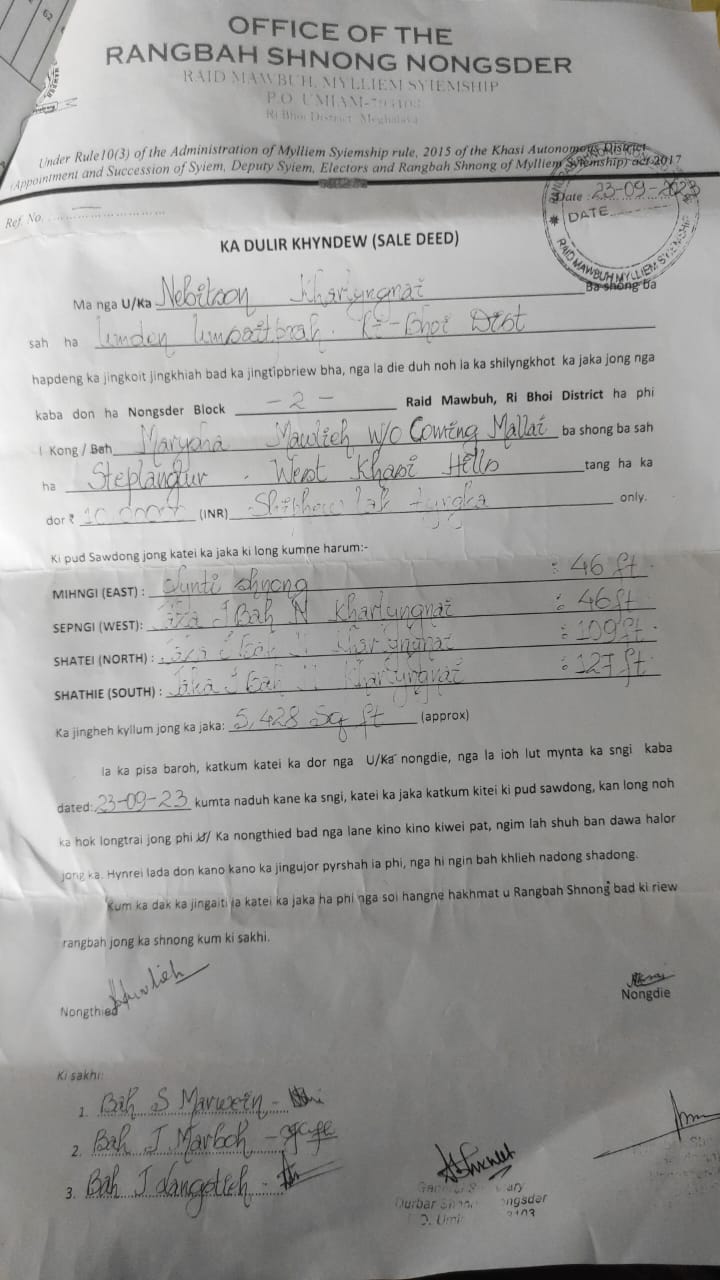 62
OFFICE OF THE
RANGBAH SHNONG NONGSDER
RAID MAWBUH, MYLLIEM SYIEMSHIP
P.O. UMIAM-793103
Ri Bhoi District, Meghalaya
Under Rule10(3) of the Administration of Mylliem Syiemship rule, 2015 of the Khasi Autonomous District
(Appointment and Succession of Syiem, Deputy Syiem, Electors and Rangbah Shnong of Mylliem Syiemship) act 2017
Ref. No.
Date : 23-09-2023
DATE
RAID MAWBUH MYLLIEM SYIEMSHIP
KA DULIR KHYNDEW (SALE DEED)
Ma nga U/Ka Nebitson Kharlyngnai Ba shong ba
sah ha Umden Ri-Bhoi Dist
hapdeng ka jingkoit jingkhiah bad ka jingtipbriew bha, nga la die duh noh ia ka shilyngkhot ka jaka jong nga
kaba don ha Nongsder Block - 2 - Raid Mawbuh, Ri Bhoi District ha phi
I Kong / Bah Maryona Mawlieh W/O Coming Mallai ba shong ba sah
ha Steplangur. West Khasi Hills tang ha ka
dor ₹ (INR) Shiphew lak tyngka only.
Ki pud Sawdong jong katei ka jaka ki long kumne harum:-
MIHNGI (EAST) : Surti shnong : 46 ft.
SEPNGI (WEST): Jaka J Bah N Kharlyngnai : 46ft
SHATEI (NORTH) : Jaka J Bah N Kharlyngnai : 109ft.
SHATHIE (SOUTH) : Jaka J Bah N Kharlyngnai : 127 ft.
Ka jingheh kyllum jong ka jaka: 5,428 Sq ft (approx)
Ia ka pisa baroh, katkum katei ka dor nga U/Ka nongdie, nga la ioh lut mynta ka sngi kaba
dated: 23-09-23 kumta naduh kane ka sngi, katei ka jaka katkum kitei ki pud sawdong, kan long noh
ka hok longtrai jong phi U/ Ka nongthied bad nga lane kino kino kiwei pat, ngim lah shuh ban dawa halor
jong ka. Hynrei lada don kano kano ka jingujor pyrshah ia phi, nga hi ngin bah khlieh nadong shadong.
Kum ka dak ka jingaiti ia katei ka jaka ha phi nga soi hangne hakhmat u Rangbah Shnong bad ki riew
rangbah jong ka shnong kum ki sakhi.
Nongthied
Nongdie
Ki sakhi:
1. Bah S Marwein -
2. Bah J. Marboh -
3. Bah J Langstieh -
Durbar Shnong Nongsder